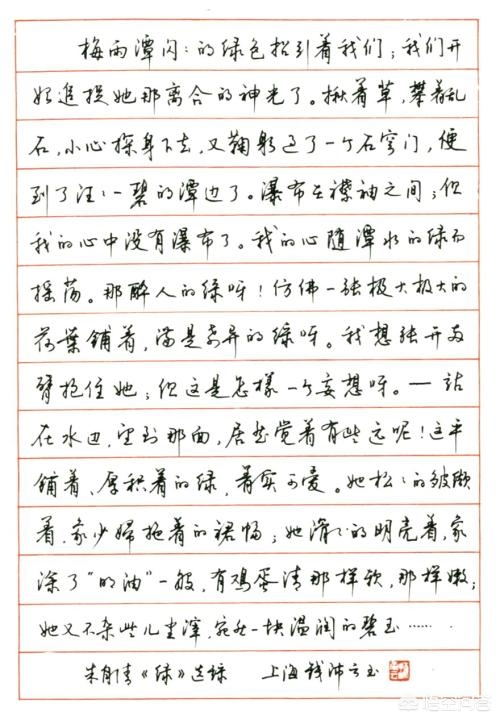 梅雨潭闪々的绿色招引着我们；我们开
始追捉她那离合的神光了。揪着草，攀着乱
石，小心探身下去，又鞠躬过了一个石穹门，便
到了汪々一碧的潭边了。瀑布在襟袖之间；但
我的心中没有瀑布了。我的心随潭水的绿而
摇荡。那醉人的绿呀！仿佛一张极大极大的
荷葉铺着，满是奇异的绿呀。我想张开两
臂抱住她；但这是怎樣一个妄想呀。—站
在水边，望到那面，居然觉着有些远呢！这平
铺着、厚积着的绿，着实可爱。她松々的皱缬
着，象少婦拖着的裙幅；她滑々的明亮着，象
涂了“明油”一般，有鸡蛋清那样软，那样嫩；
她又不杂些儿尘滓，宛然一块温润的碧玉……
朱自清《绿》选录 上海钱沛云书
悟空问答